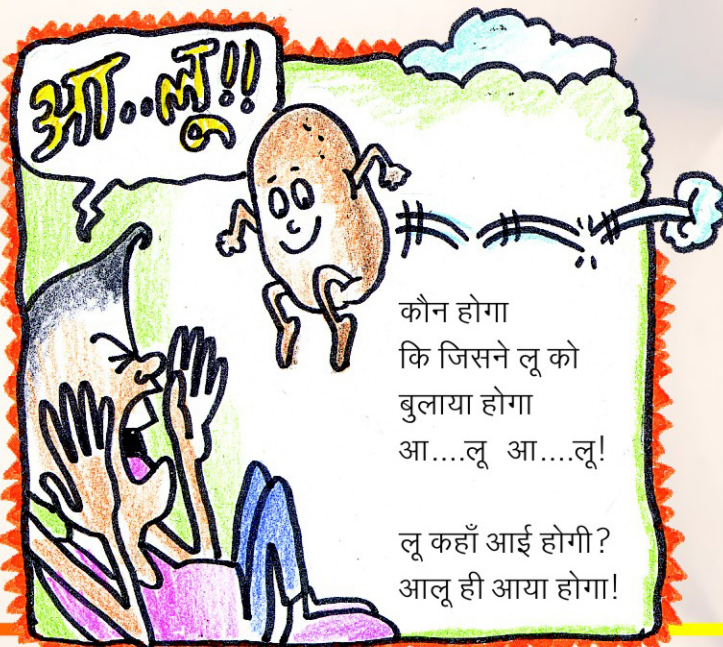 आ..लू!!
कौन होगा
कि जिसने लू को
बुलाया होगा
आ....लू आ....लू!
लू कहाँ आई होगी?
आलू ही आया होगा!